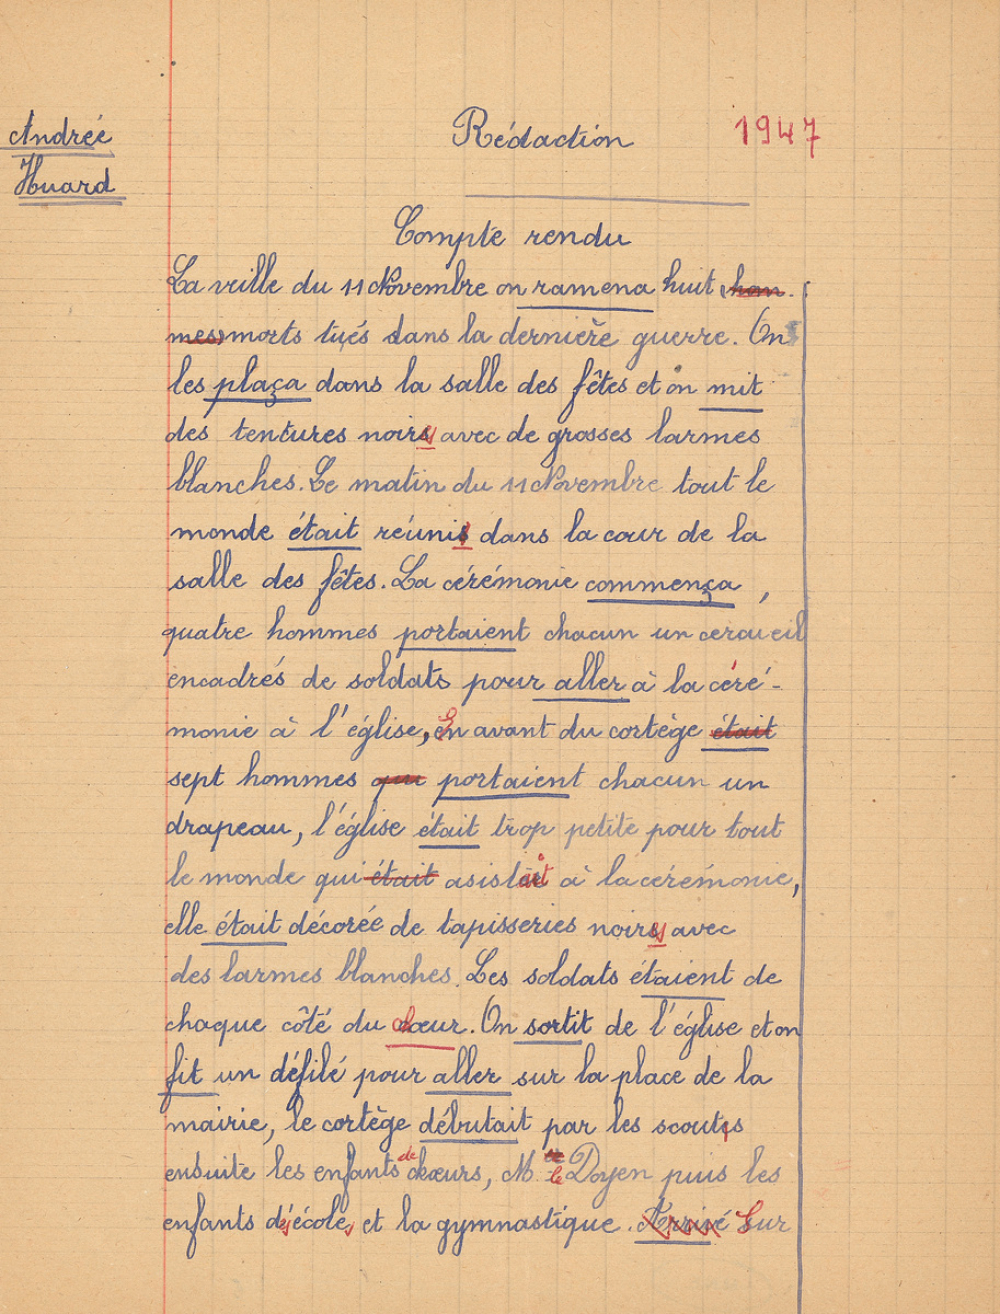 Andrée
Huard
Rédaction 1947
Compte rendu
La veille du 11 Novembre on ramena huit hom-
mes morts tués dans la dernière guerre. On
les plaça dans la salle des fêtes et on mit
des tentures noires avec de grosses larmes
blanches. Le matin du 11 Novembre tout le
monde était réunis dans la cour de la
salle des fêtes. La cérémonie commença,
quatre hommes portaient chacun un cercueil
encadrés de soldats pour aller à la céré-
monie à l'église, En avant du cortège était
sept hommes qui portaient chacun un
drapeau, l'église était trop petite pour tout
le monde qui était asistait à la cérémonie,
elle était décorée de tapisseries noires avec
des larmes blanches. Les soldats étaient de
chaque côté du chœur. On sortit de l'église et on
fit un défilé pour aller sur la place de la
mairie, le cortège débutait par les scouts
ensuite les enfants de chœurs, M. le Doyen puis les
enfants des écoles et la gymnastique. Arrivé Sur